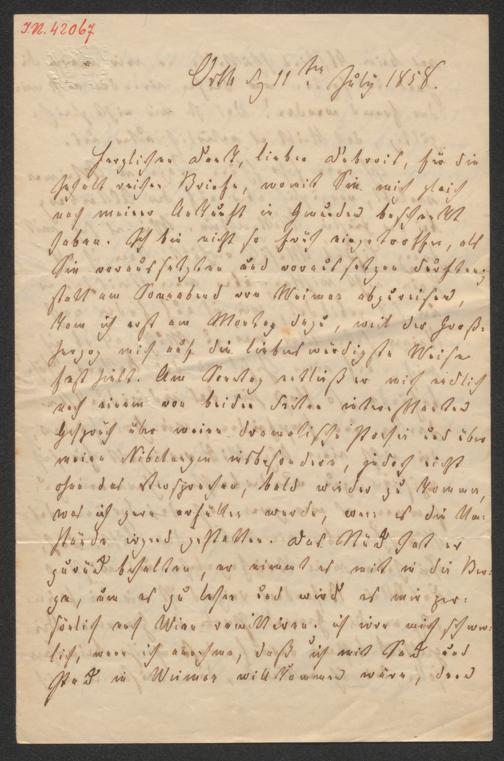 J.N. 42067
Orth d 11ten July 1858.
Herzlichen Dank, lieber Debrois, für die
gehaltreichen Briefe, womit Sie mich gleich
nach meiner Ankunft in Gmunden beschenkt
haben. Ich bin nicht so früh eingetroffen, als
Sie voraussetzten und voraussetzen durften;
statt am Sonnabend von Weimar abzureisen,
kam ich erst am Montag dazu, weil der Groß-
herzog mich auf die liebenswürdigste Weise
fest hielt. Am Sonntag entließ er mich endlich
nach einem von beiden Seiten interessanten
Gespräch über meine dramatische Poesie und über
meine Nibelungen insbesondere, jedoch nicht
ohne das Versprechen, bald wieder zu kommen,
was ich gern erfüllen werde, wenn es die Um-
stände irgend gestatten. Das Stück hat er
zurück behalten, er nimmt es mit in die Ber-
ge, um es zu lesen und wird es mir per-
sönlich nach Wien remittiren. ich irre mich schwer-
lich, wenn ich annehme, daß ich mit Sack und
Pack in Weimar willkommen wäre, denn